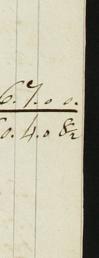 6.7.0.0.
0.4.0 8½